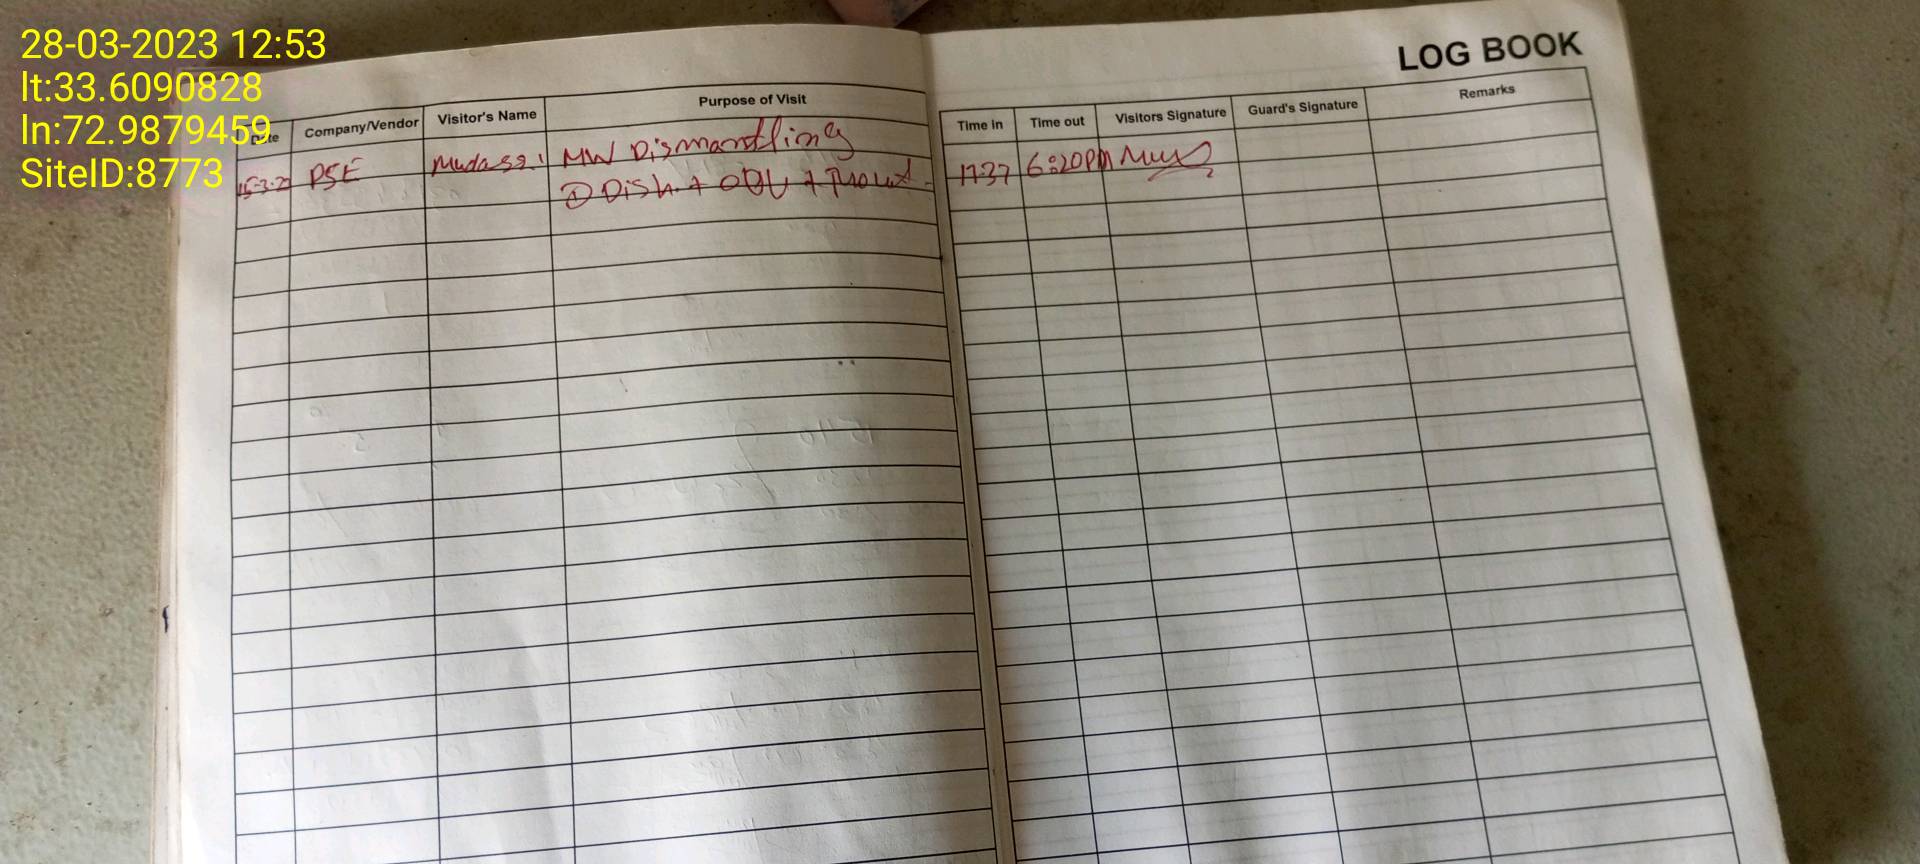 28-03-2023 12:53
lt:33.6090828
ln:72.9879459
SiteID:8773
LOG BOOK
Date Company/Vendor Visitor's Name Purpose of Visit Time In Time out Visitors Signature Guard's Signature Remarks
PSE MW Dismantling 17:37 6:20PM
Dish + ODU +